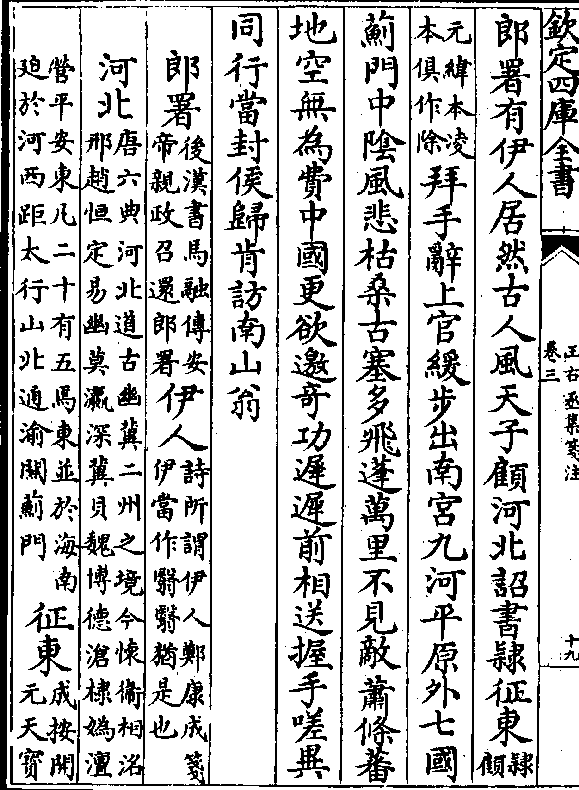 欽定四庫全書
王右丞集箋注
卷三
十九
郎署有伊人居然古人風天子顧河北詔書隷征東隷顧
元緯本凌本俱作除拜手辭上官緩步出南宮九河平原外七國
薊門中陰風悲枯桑古塞多飛蓬萬里不見敵蕭條蕃
地空無為費中國更欲邀奇功遲遲前相送握手嗟異
同行當封侯歸肯訪南山翁
郎署後漢書馬融傳安帝親政召還郎署伊人詩所謂伊人鄭康成箋伊當作繄繄猶是也
河北唐六典河北道古幽冀二州之境今懷衞相洺邢趙恒定易幽莫瀛深冀貝魏博德滄棣媯澶
營平安東凡二十有五焉東並於海南廹於河西距太行山北通渝關薊門征東成按開元天寳